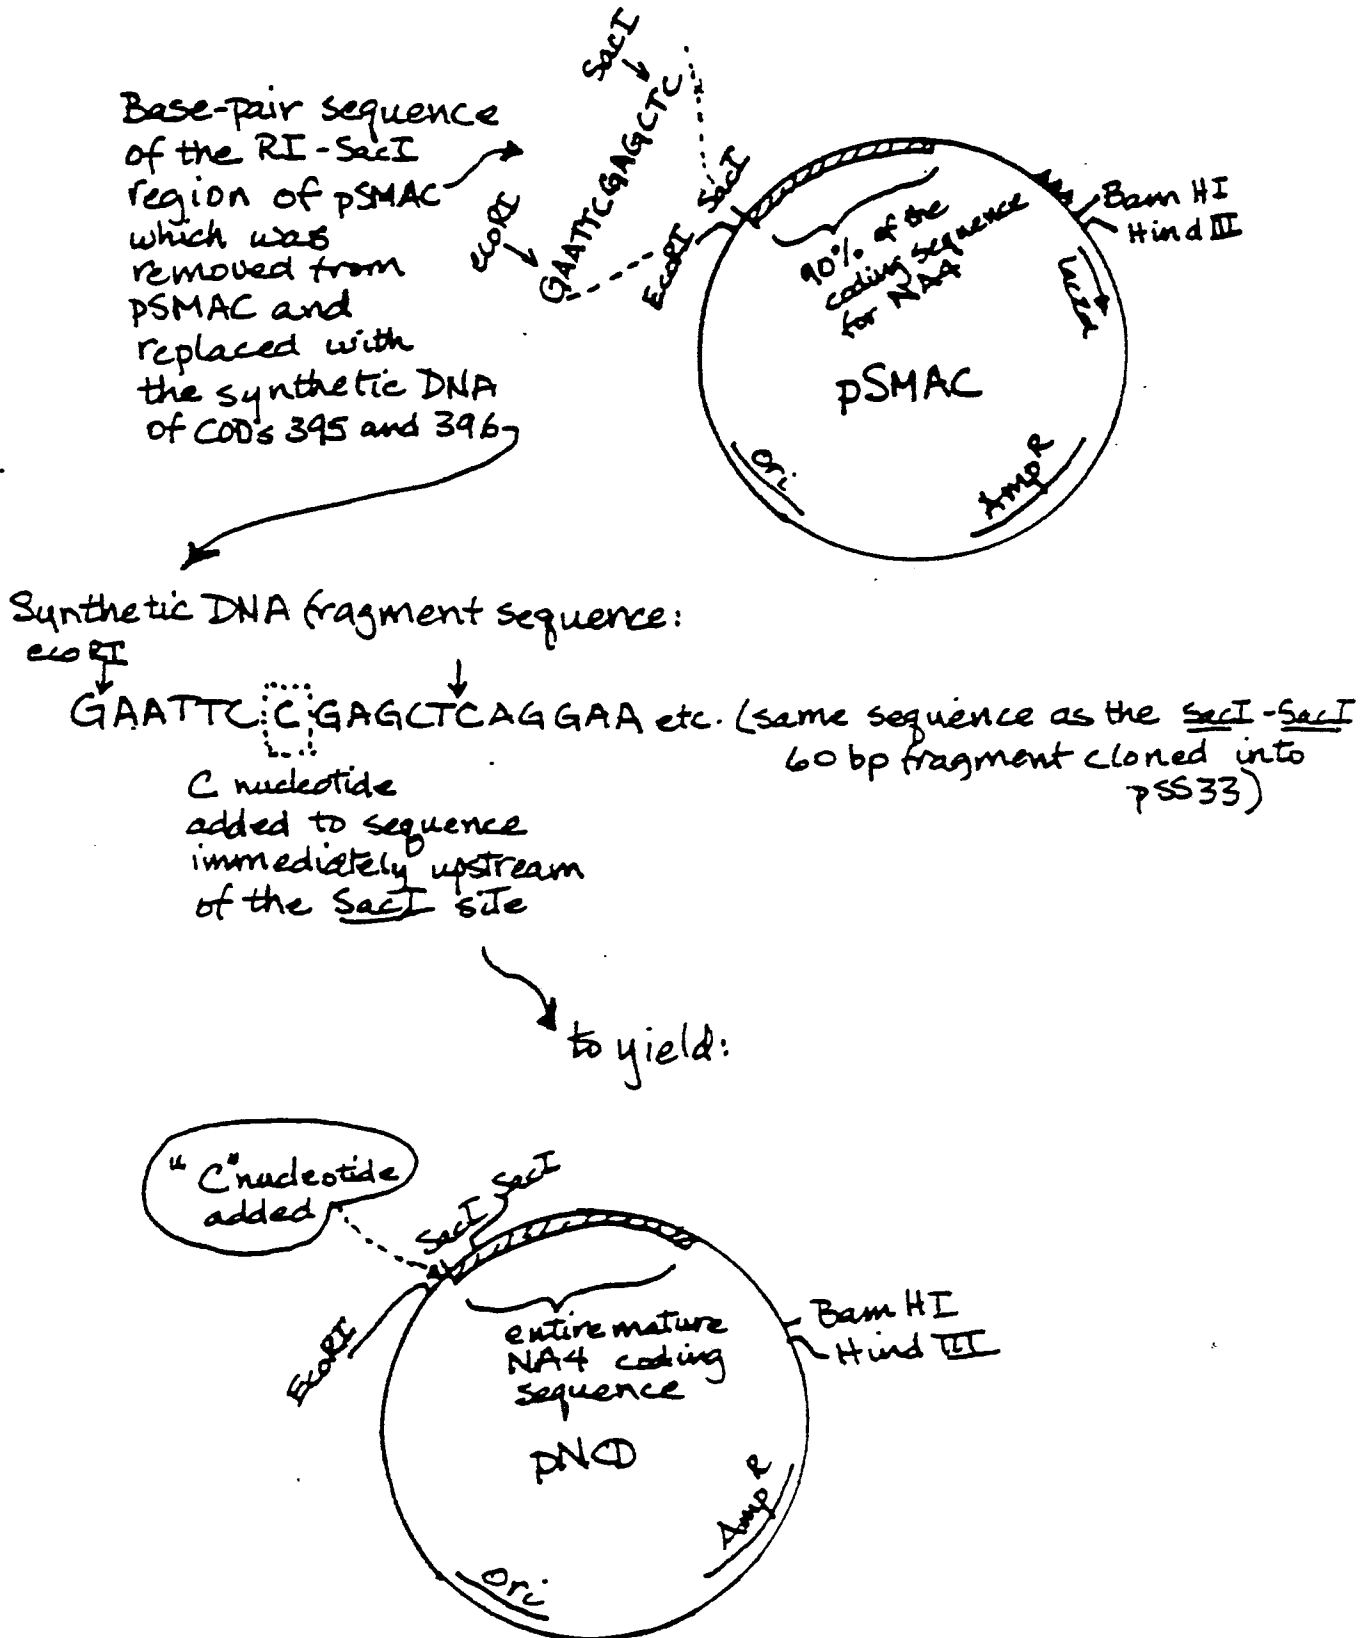 SacI
Base-pair sequence
of the RI-SacI
region of pSMAC
which was
removed from
pSMAC and
replaced with
the synthetic DNA
of COD's 395 and 396
ecoRI
GAATTCGAGCTC
EcoRI
SacI
90% of the
coding sequence
for NA4
Bam HI
Hind III
pSMAC
Ori
Amp R
Synthetic DNA fragment sequence:
eco RI
GAATTC C GAGCTCAGGAA etc. (same sequence as the SacI-SacI
60 bp fragment cloned into
pSS33)
C nucleotide
added to sequence
immediately upstream
of the SacI site
to yield:
"C" nucleotide
added
SacI
SacI
EcoRI
entire mature
NA4 coding
sequence
Bam HI
Hind III
Amp R
Ori